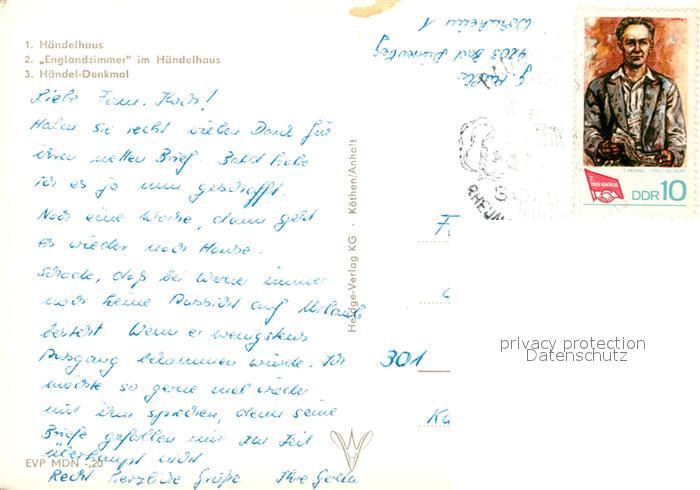 1. Händelhaus
2. „Englandzimmer" im Händelhaus
3. Händel-Denkmal
Liebe Frau Koch!
Haben Sie recht vielen Dank für
ihren netten Brief. Bald habe
ich es ja nun geschafft.
Noch eine Woche, dann geht
es wieder nach Hause.
Schade, daß bei Werner immer
noch keine Aussicht auf Urlaub
besteht. Wenn er wenigstens
Ausgang bekommen würde. Ich
möchte so gerne mal wieder
mit ihm sprechen, denn seine
Briefe gefallen mir zur Zeit
überhaupt nicht
Recht herzliche Grüße Ihre
EVP MDN -,20
Heldge-Verlag KG · Köthen/Anhalt
4203 Bad Dürrenberg
RHEUM
7. FDGB-KONGRESS
FRITZ HECKERT
DDR 10
301
privacy protection
Datenschutz